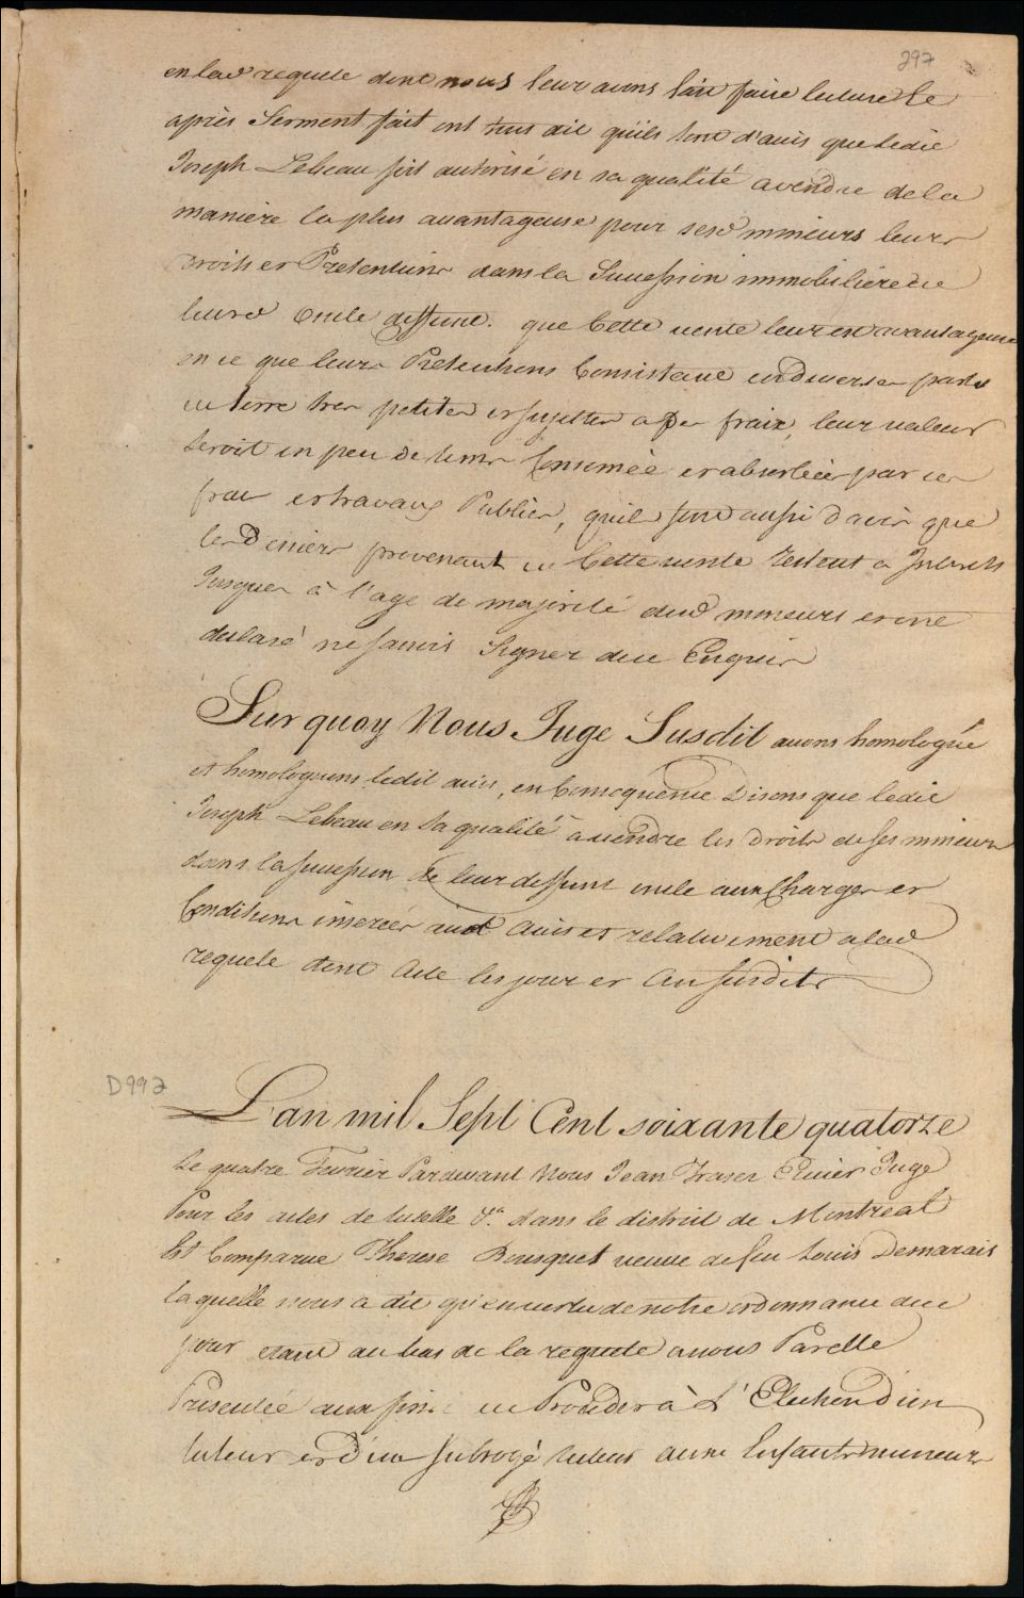 297
en lad requete dont nous leur avons fait faire lecture Et
après Serment fait ont tous dit qu'ils sont d'avis que ledit
Joseph Lebeau soit autorisé en sa qualité a vendre de la
manière la plus avantageuse pour sesd mineurs leurs
Droits et Pretentions dans la Succession immobiliere de
leurd oncle deffunt. que Cette vente leur est avantageuse
en ce que leurs Pretentions Consistant en diverses parts
de terre tres petites et sujettes a des fraix, leur valeur
seroit en peu de tems Consomée et absorbée par ces
frais et travaux Publics, qu'ils sont aussi d'avis que
les Deniers provenant de Cette vente restent a Interets
Jusques à l'age de majorité desd mineurs et ont
declaré ne savoir Signer de ce Enquis
Sur quoy Nous Juge Susdit avons homologué
et homologuons ledit avis, en Consequence Disons que ledit
Joseph Lebeau en sa qualité a vendre les Droits de ses mineurs
dans la succession de leur deffunt oncle aux Charges et
Conditions inserées aud avis et relativement a lad
requete dont Acte les jour et An susdits
D992
L'an mil Sept Cent soixante quatorze
le quatre Fevrier Pardevant Nous Jean Fraser Ecuier Juge
Pour les actes de tutelle &a. dans le district de Montreal
Est Comparue Therese Bousquet veuve de feu Louis Demarais
laquelle nous a dit qu'en vertu de notre ordonnance de ce
jour etant au bas de la requete a nous Par elle
Presentée aux fins de Proceder à L'Election d'un
tuteur et d'un subrogé tuteur aux Enfants mineurs